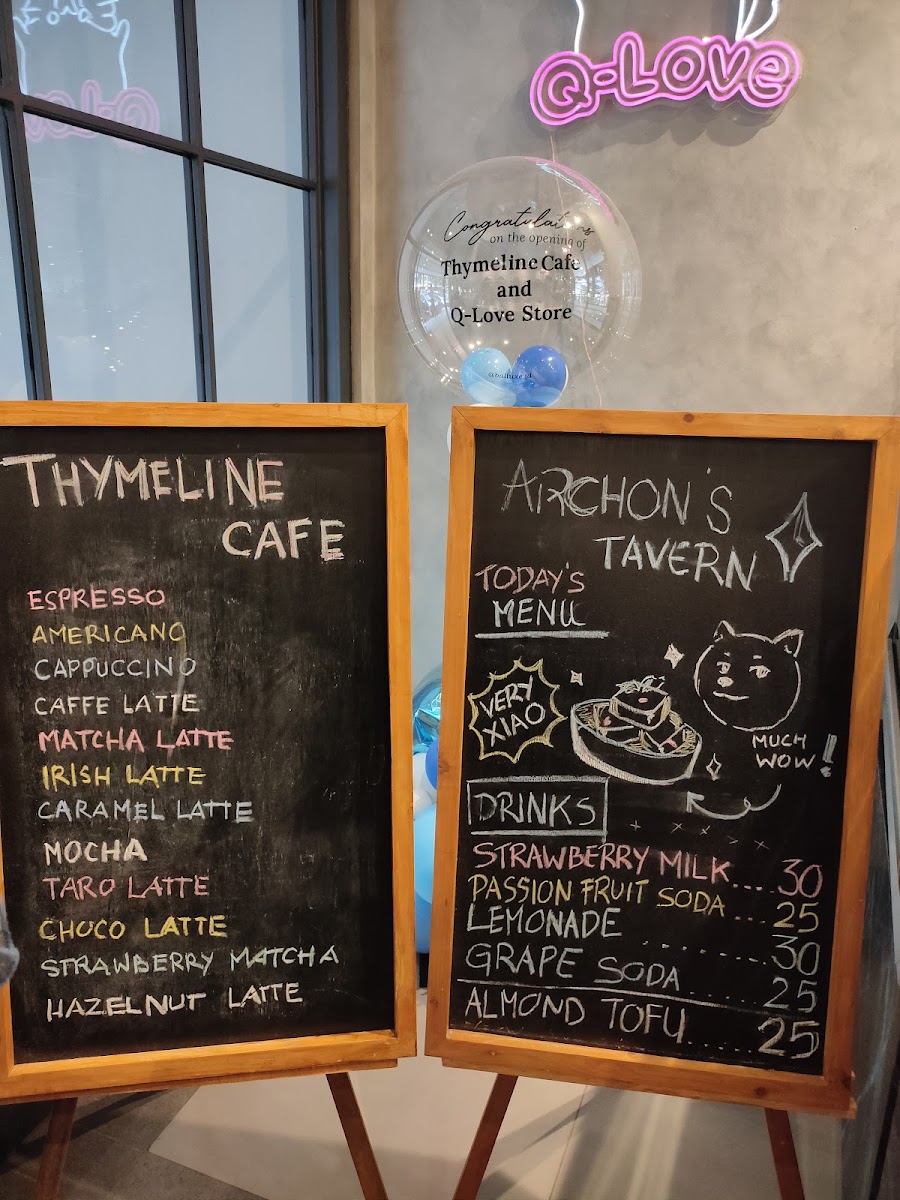 Q-Love
Congratulations
on the opening of
Thymeline Cafe
and
Q-Love Store
THYMELINE
CAFE
ESPRESSO
AMERICANO
CAPPUCCINO
CAFFE LATTE
MATCHA LATTE
IRISH LATTE
CARAMEL LATTE
MOCHA
TARO LATTE
CHOCO LATTE
STRAWBERRY MATCHA
HAZELNUT LATTE
ARCHON'S
TAVERN
TODAY'S
MENU
VERY
XIAO
MUCH
WOW!
DRINKS
STRAWBERRY MILK....30
PASSION FRUIT SODA...25
LEMONADE.......30
GRAPE SODA......25
ALMOND TOFU.....25